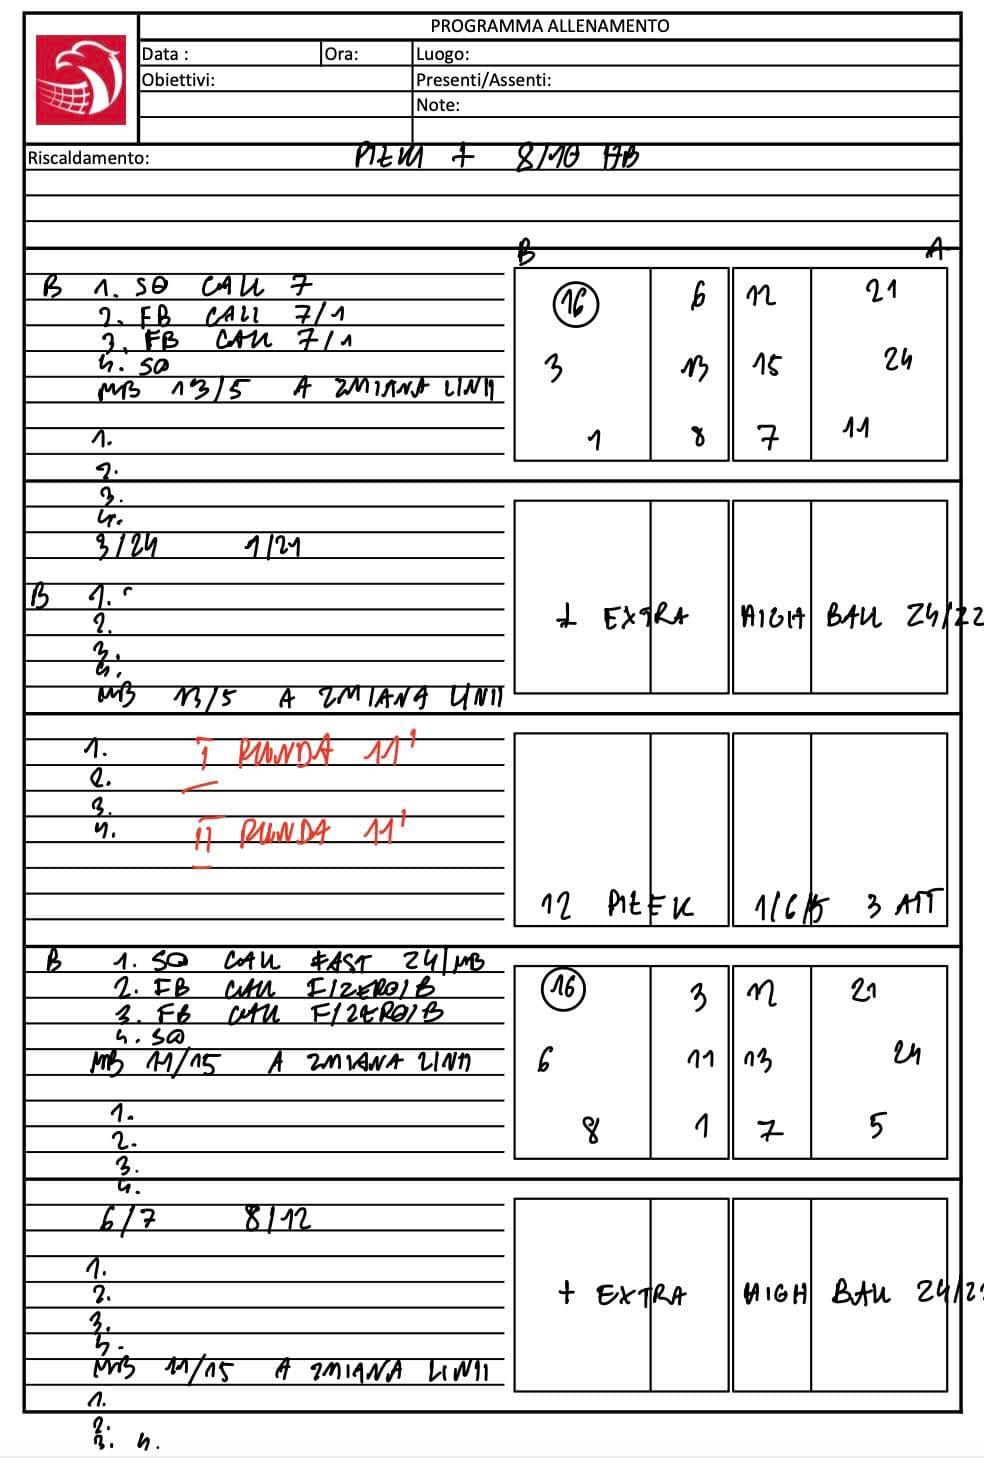 PROGRAMMA ALLENAMENTO
Data : Ora: Luogo:
Obiettivi: Presenti/Assenti:
Note:
Riscaldamento: 8/10 HB
B A
B 1. SO CALL 7
2. FB CALL 7/1
3. FB CALL 7/1
4. SO
MB 13/5 A ZMIANA LINII
1.
2.
3.
4.
16 6 12 21
3 13 15 24
1 8 7 11
3/24 1/21
B 1.
2.
3.
4.
MB 13/5 A ZMIANA LINII
+ EXTRA HIGH BALL 24/22
1. I RUNDA 11'
2.
3.
4. II RUNDA 11'
12 PIŁEK 1/6/5 3 ATT
B 1. SO CALL FAST 24/MB
2. FB CALL F/ZERO/B
3. FB CALL F/ZERO/B
4. SO
MB 11/15 A ZMIANA LINII
1.
2.
3.
4.
16 3 12 21
6 11 13 24
8 1 7 5
6/7 8/12
1.
2.
3.
4.
MB 11/15 A ZMIANA LINII
1.
2.
3. 4.
+ EXTRA HIGH BALL